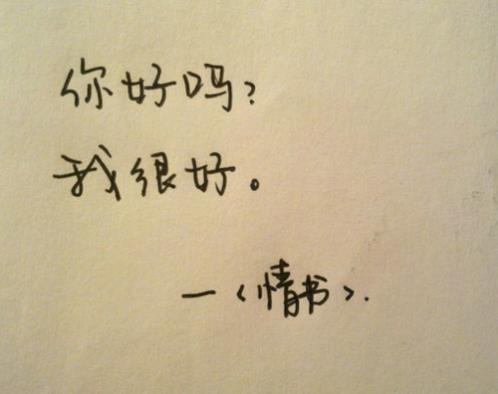 你好吗?
我很好。
—<情书>.